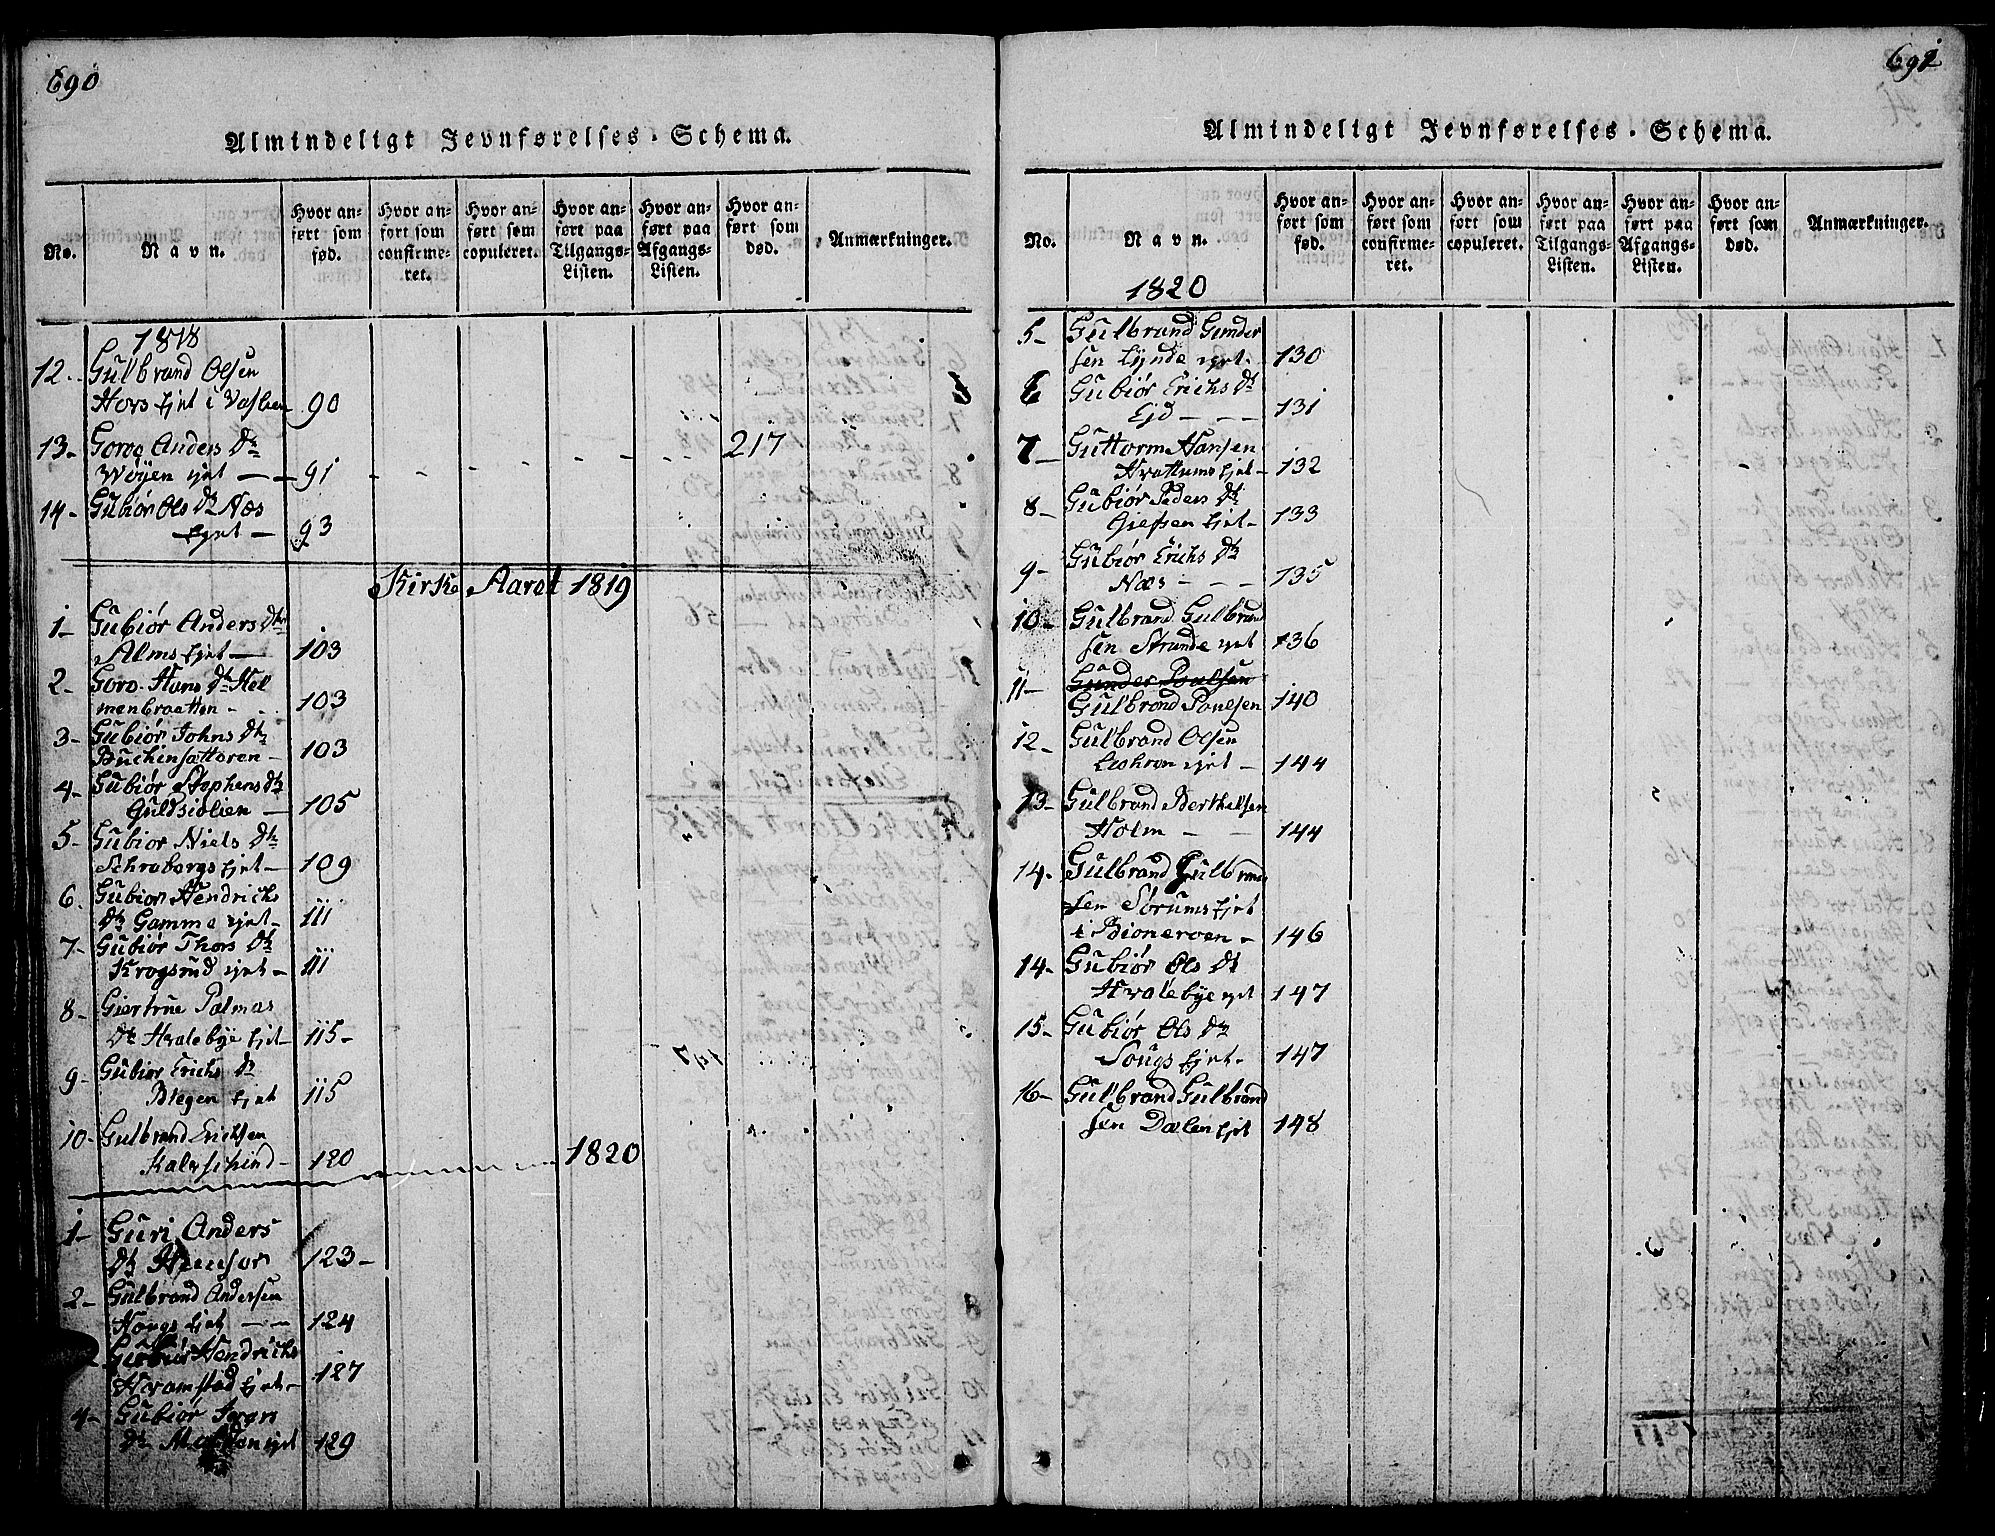 690
Almindeligt Jevnførelses-Schema.
No.
Navn.
Hvor anført som fød.
Hvor anført som confirmeret.
Hvor anført som copuleret.
Hvor anført paa Tilgangs-Listen.
Hvor anført paa Afgangs-Listen.
Hvor anført som død.
Anmærkninger.
1818
12. Gulbrand Olsen
Hors Ejet i 90
13- Goro Anders Dtr 217
Wøyen ejet - 91
14- Gubiør Ols Dtr Næs
Ejet - 93
Kirke Aaret 1819
1- Gubiør Anders Dtr
Alms Ejet - 103
2- Goro Hans Dtr Hel
menbraatten - 103
3- Gubiør Johns Dtr
103
4- Gubiør Stephens Dtr
Guldsiølien - 105
5- Gubiør Niels Dtr
Schrabergs Ejet - 109
6. Gubiør Hendrichs
Dtr Gamme ejet - 111
7- Gubiør Thors Dtr
Krogsrud ejet - 111
8- Giertrue Palmas
Dtr Hvalebye Ejet 115-
9- Gubiør Erichs Dtr
Blegen Ejet 115
10- Gulbrand Erichsen
120
1820
1- Guri Anders
Dtr 123-
2- Gulbrand Andersen
Hougs Ejet - - 124
Gubiør Hendrichs
Hvamstad Ejet - 127
4- Gubiør Ivers
Dtr ejet 129
691
Almindeligt Jevnførelses-Schema.
No.
Navn.
Hvor anført som fød.
Hvor anført som confirmeret.
Hvor anført som copuleret.
Hvor anført paa Tilgangs-Listen.
Hvor anført paa Afgangs-Listen.
Hvor anført som død.
Anmærkninger.
1820
5- Gulbrand Gunder
sen Lynde ejet - 130
6 Gubiør Erichs Dtr
Ejd - - - 131
7- Guttorm Hansen
Hvattums Ejet - 132
8- Gubiør Peders Dtr
Ejet - 133
9- Gubiør Erichs Dtr
Næs - - - 135
10- Gulbrand Gulbrand
sen Strande ejet 136
11- Gunder Poulsen
Gulbrand Poulsen 140
12- Gulbrand Olsen
ejet - 144
13- Gulbrand Berthelsen
Holm - - 144
14- Gulbrand Gulbrand
sen Sørums Ejet
i 146
14- Gubiør Ols Dtr
Hvalebye ejet 147
15- Gubiør Ols Dtr
Sougs Ejet - 147
16- Gulbrand Gulbrand
sen Dælen Ejet 148